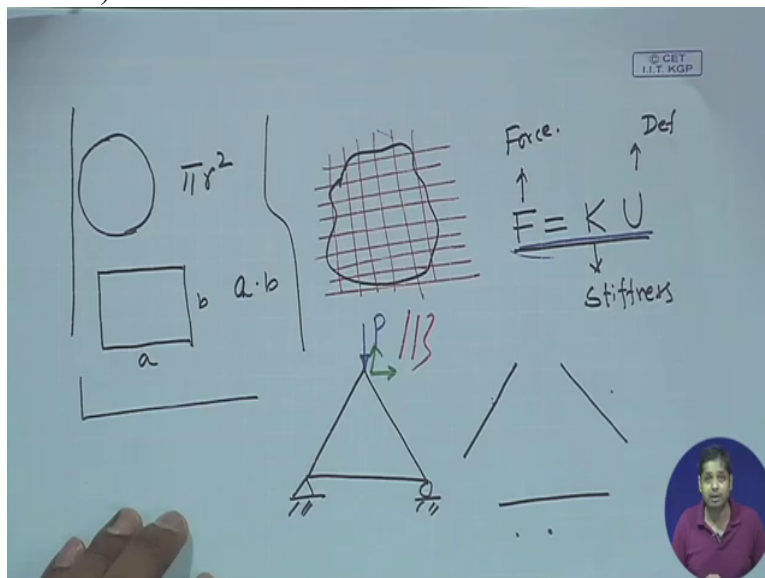 © CET
I.I.T. KGP
πr²
a · b
b
a
Force.
Def
F = K U
Stiffness
P